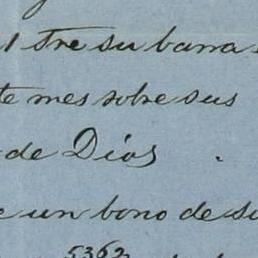 1 tre su barra
te mes sobre sus
de Dios .
e un bono de su
5362